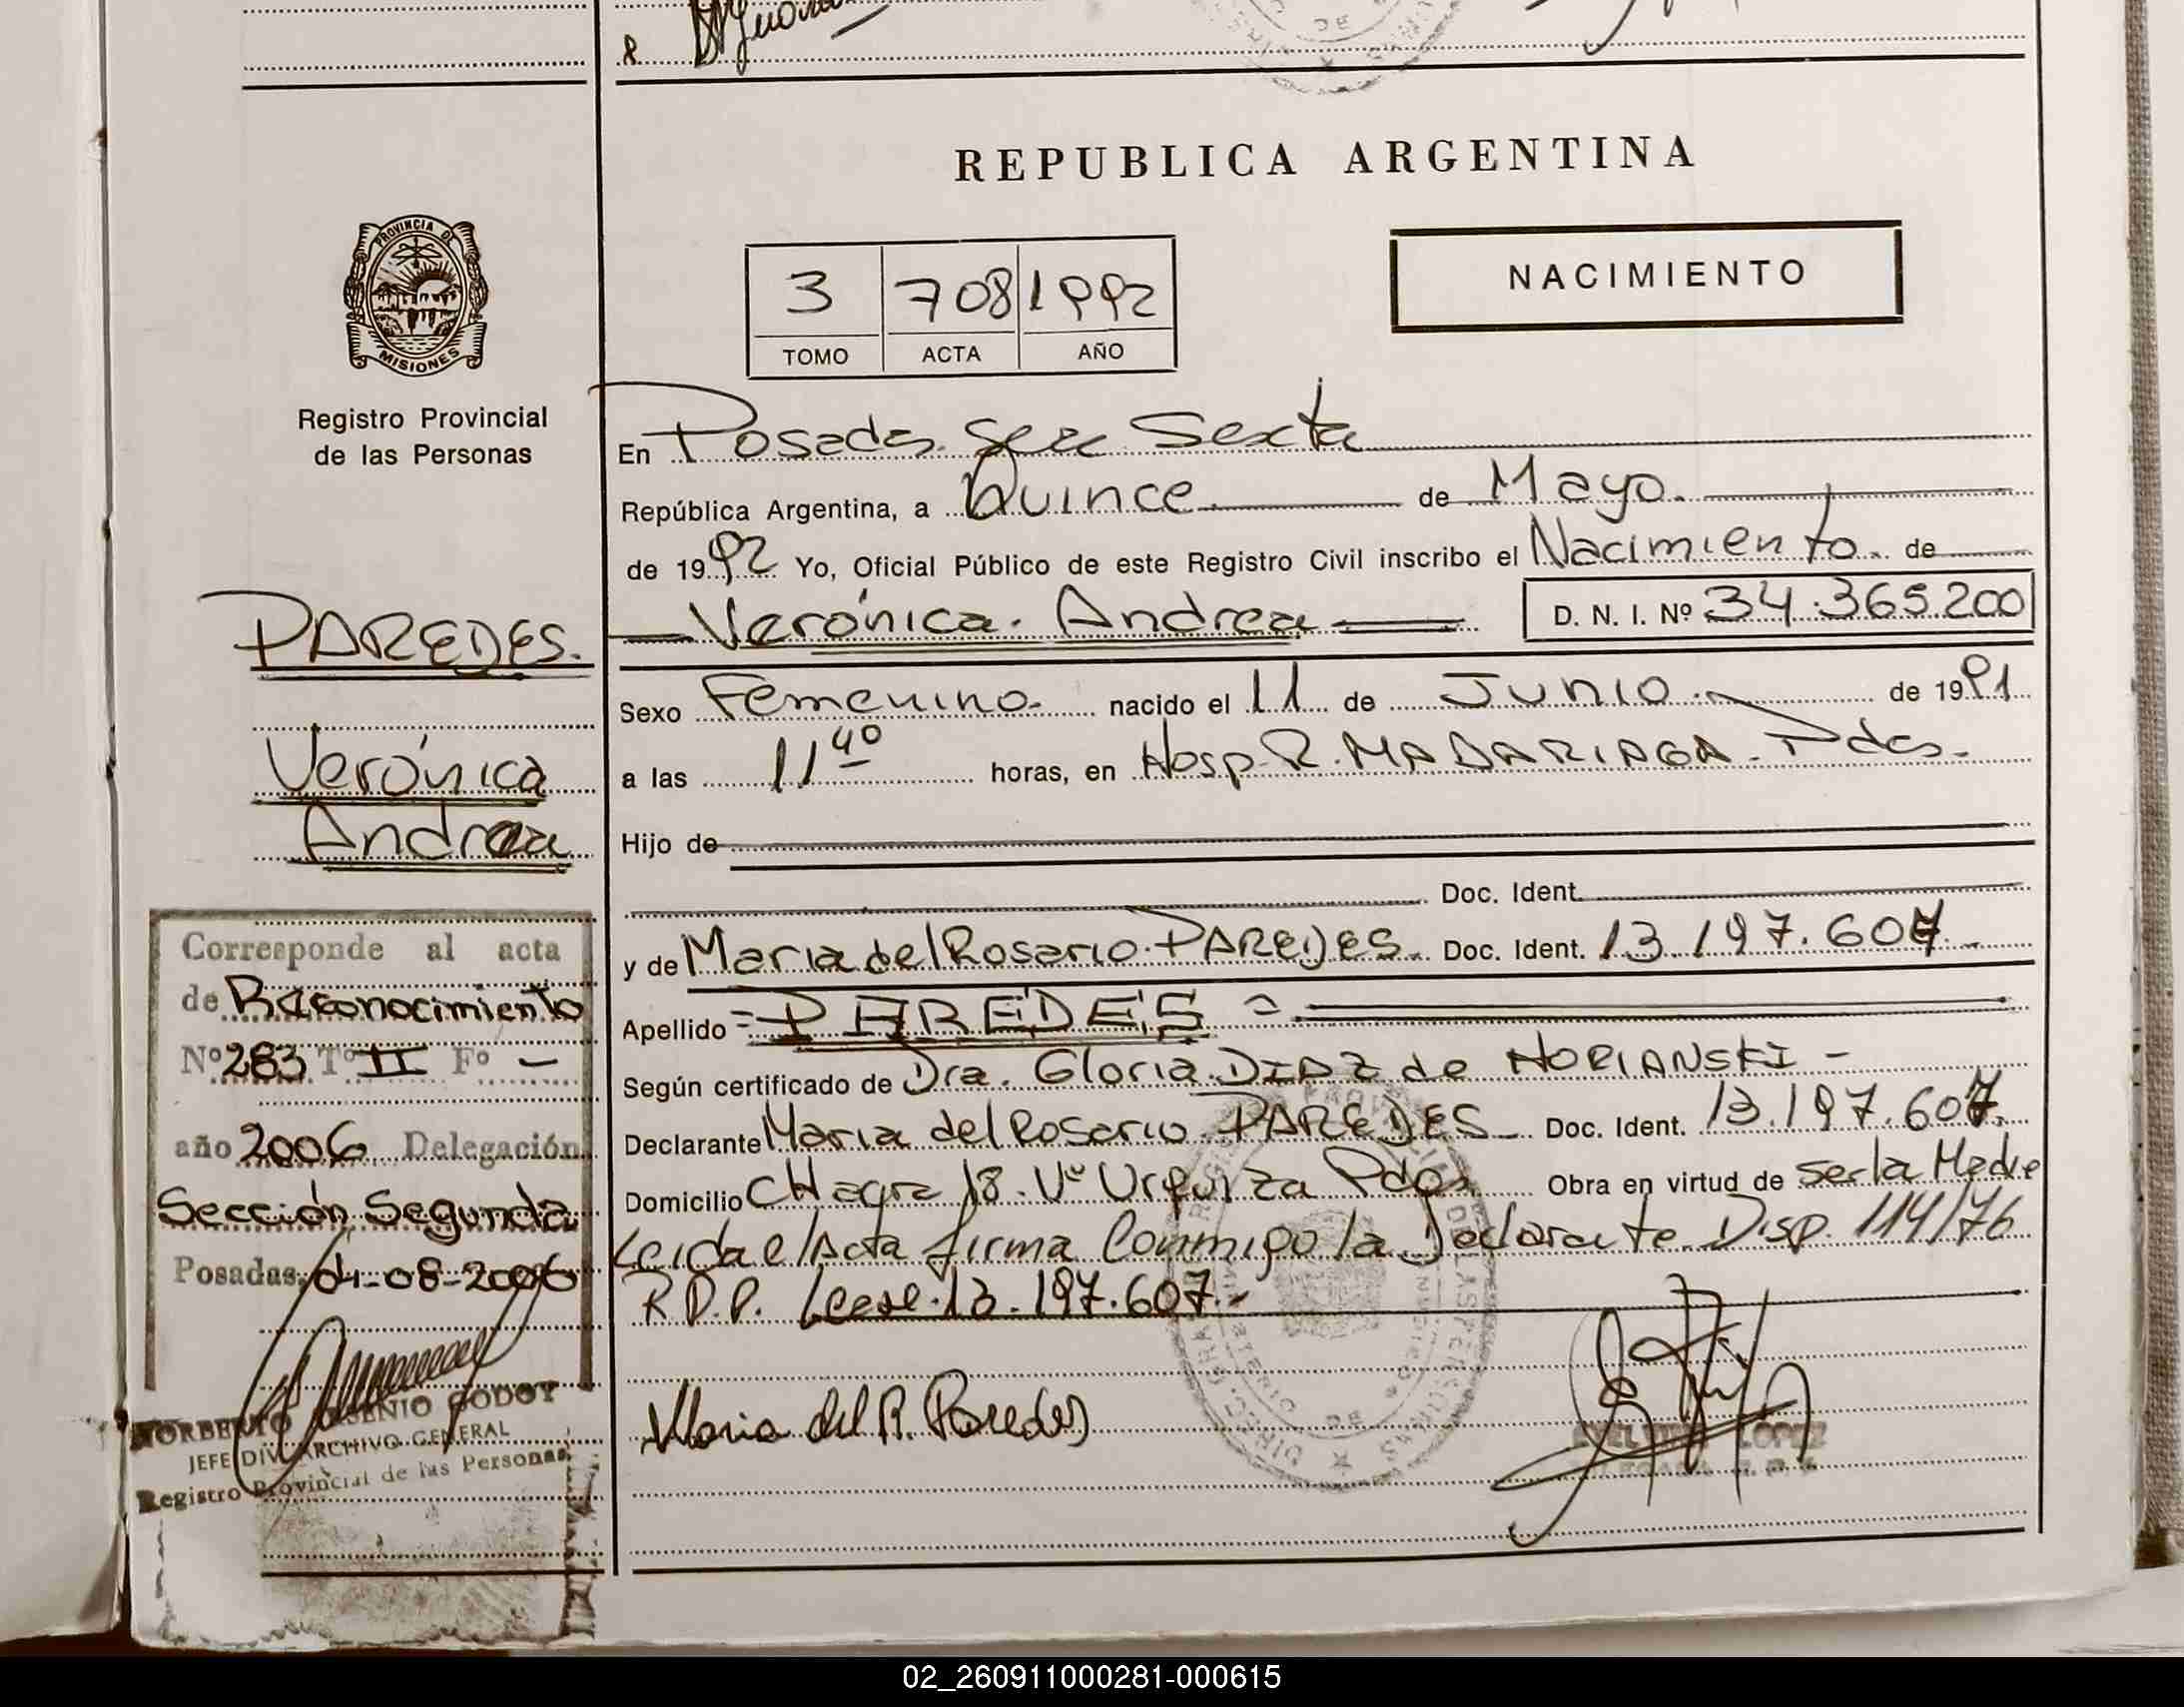 8.
REPUBLICA ARGENTINA
PROVINCIA DE
MISIONES
Registro Provincial
de las Personas
3 708 1992
TOMO ACTA AÑO
NACIMIENTO
En Posadas. Secc Sexta
República Argentina, a Quince de Mayo.
de 1992 Yo, Oficial Público de este Registro Civil inscribo el Nacimiento de
Verónica. Andrea D. N. I. Nº 34.365.200
PAREDES.
Verónica
Andrea
Sexo Femenino. nacido el 11 de Junio. de 1991
a las 11 40 horas, en Hosp. R. MADARIAGA. Pdas.
Hijo de
Doc. Ident.
y de Maria del Rosario. PAREDES. Doc. Ident. 13.197.607.
Apellido = PAREDES =
Según certificado de Dra. Gloria DIAZ de NORIANSKI -
Declarante Maria del Rosario PAREDES Doc. Ident. 13.197.607.
Domicilio CHacra 18. Vª Urquiza Pdas Obra en virtud de ser la Madre
Leida el Acta firma Conmigo la Declarante Disp. 114/76
R.P.P. Lease. 13.197.607.-
Maria del R. Paredes
LOPEZ
Corresponde al acta
de Reconocimiento
Nº 283 Tº II Fº -
año 2006 Delegación
Sección Segunda
Posadas, 04-08-2006
NORBERTO GODOY
JEFE DIV. ARCHIVO GENERAL
Registro Provincial de las Personas
02_260911000281-000615